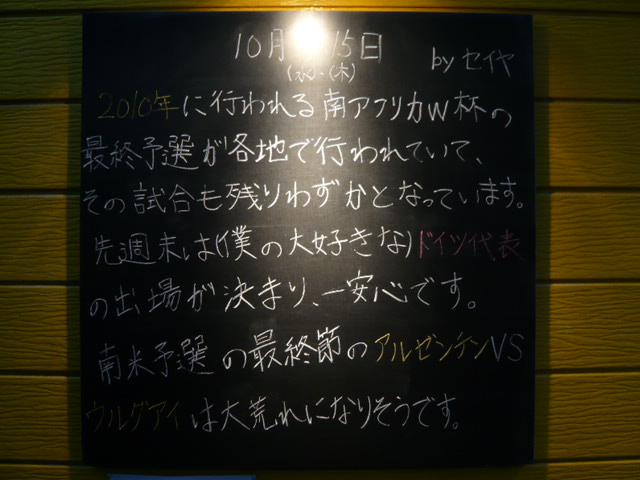 10月 15日
(水)・(木)
by セイヤ
2010年に行われる南アフリカW杯の
最終予選が各地で行われていて、
その試合も残りわずかとなっています。
先週末は(僕の大好きな)ドイツ代表
の出場が決まり、一安心です。
南米予選の最終節のアルゼンチンVS
ウルグアイは大荒れになりそうです。